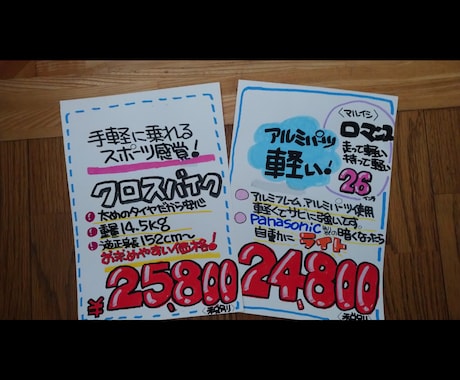 手軽に乗れる
スポーツ感覚!
クロスバイク
太めのタイヤだから安心
重量14.5kg
適正身長152cm〜
お求めやすい価格!
25,800
アルミパーツ
軽い!
〈マルイシ〉
ロマーユ
走って軽い
持って軽い
26インチ
アルミフレーム、アルミパーツ使用
軽くてサビに強いです。
Panasonic
暗くなったら
自動に ライト
24,800